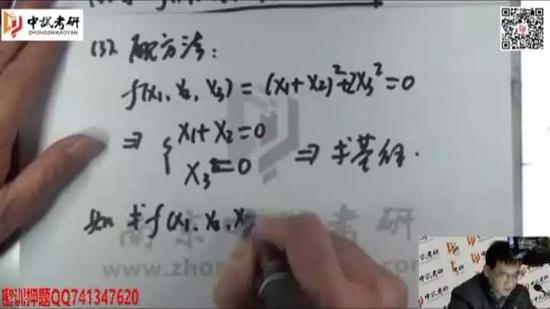 中试考研
ZHONGSHIKAOYAN
(3) 配方法:
f(x₁, x₂, x₃) = (x₁+x₂)²+2x₃² = 0
⇒ { x₁+x₂=0
x₃=0 ⇒ 求基解.
如 求f(x₁, x₂, x
考研
www.zhong
密训押题QQ741347620